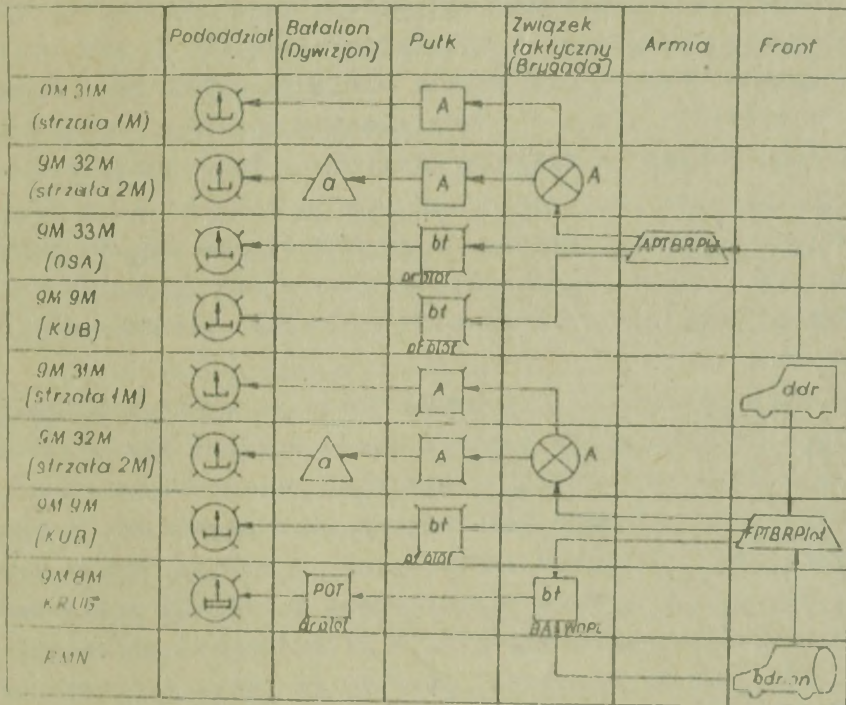 Pododdział Batalion (Dywizjon) Pułk Związek taktyczny (Brygada) Armia Front
9M 31M
(strzała 1M)
A
9M 32M
(strzała 2M)
a A A
9M 33M
(OSA)
bt APTBRPlot
dr plot
9M 9M
(KUB)
bt
pf plot
9M 31M
(strzała 1M)
A ddr
9M 32M
(strzała 2M)
a A A
9M 9M
(KUB)
bt FPTBRPlot
pf plot
9M 8M
KRUG
POT bt
dr plot
RMN